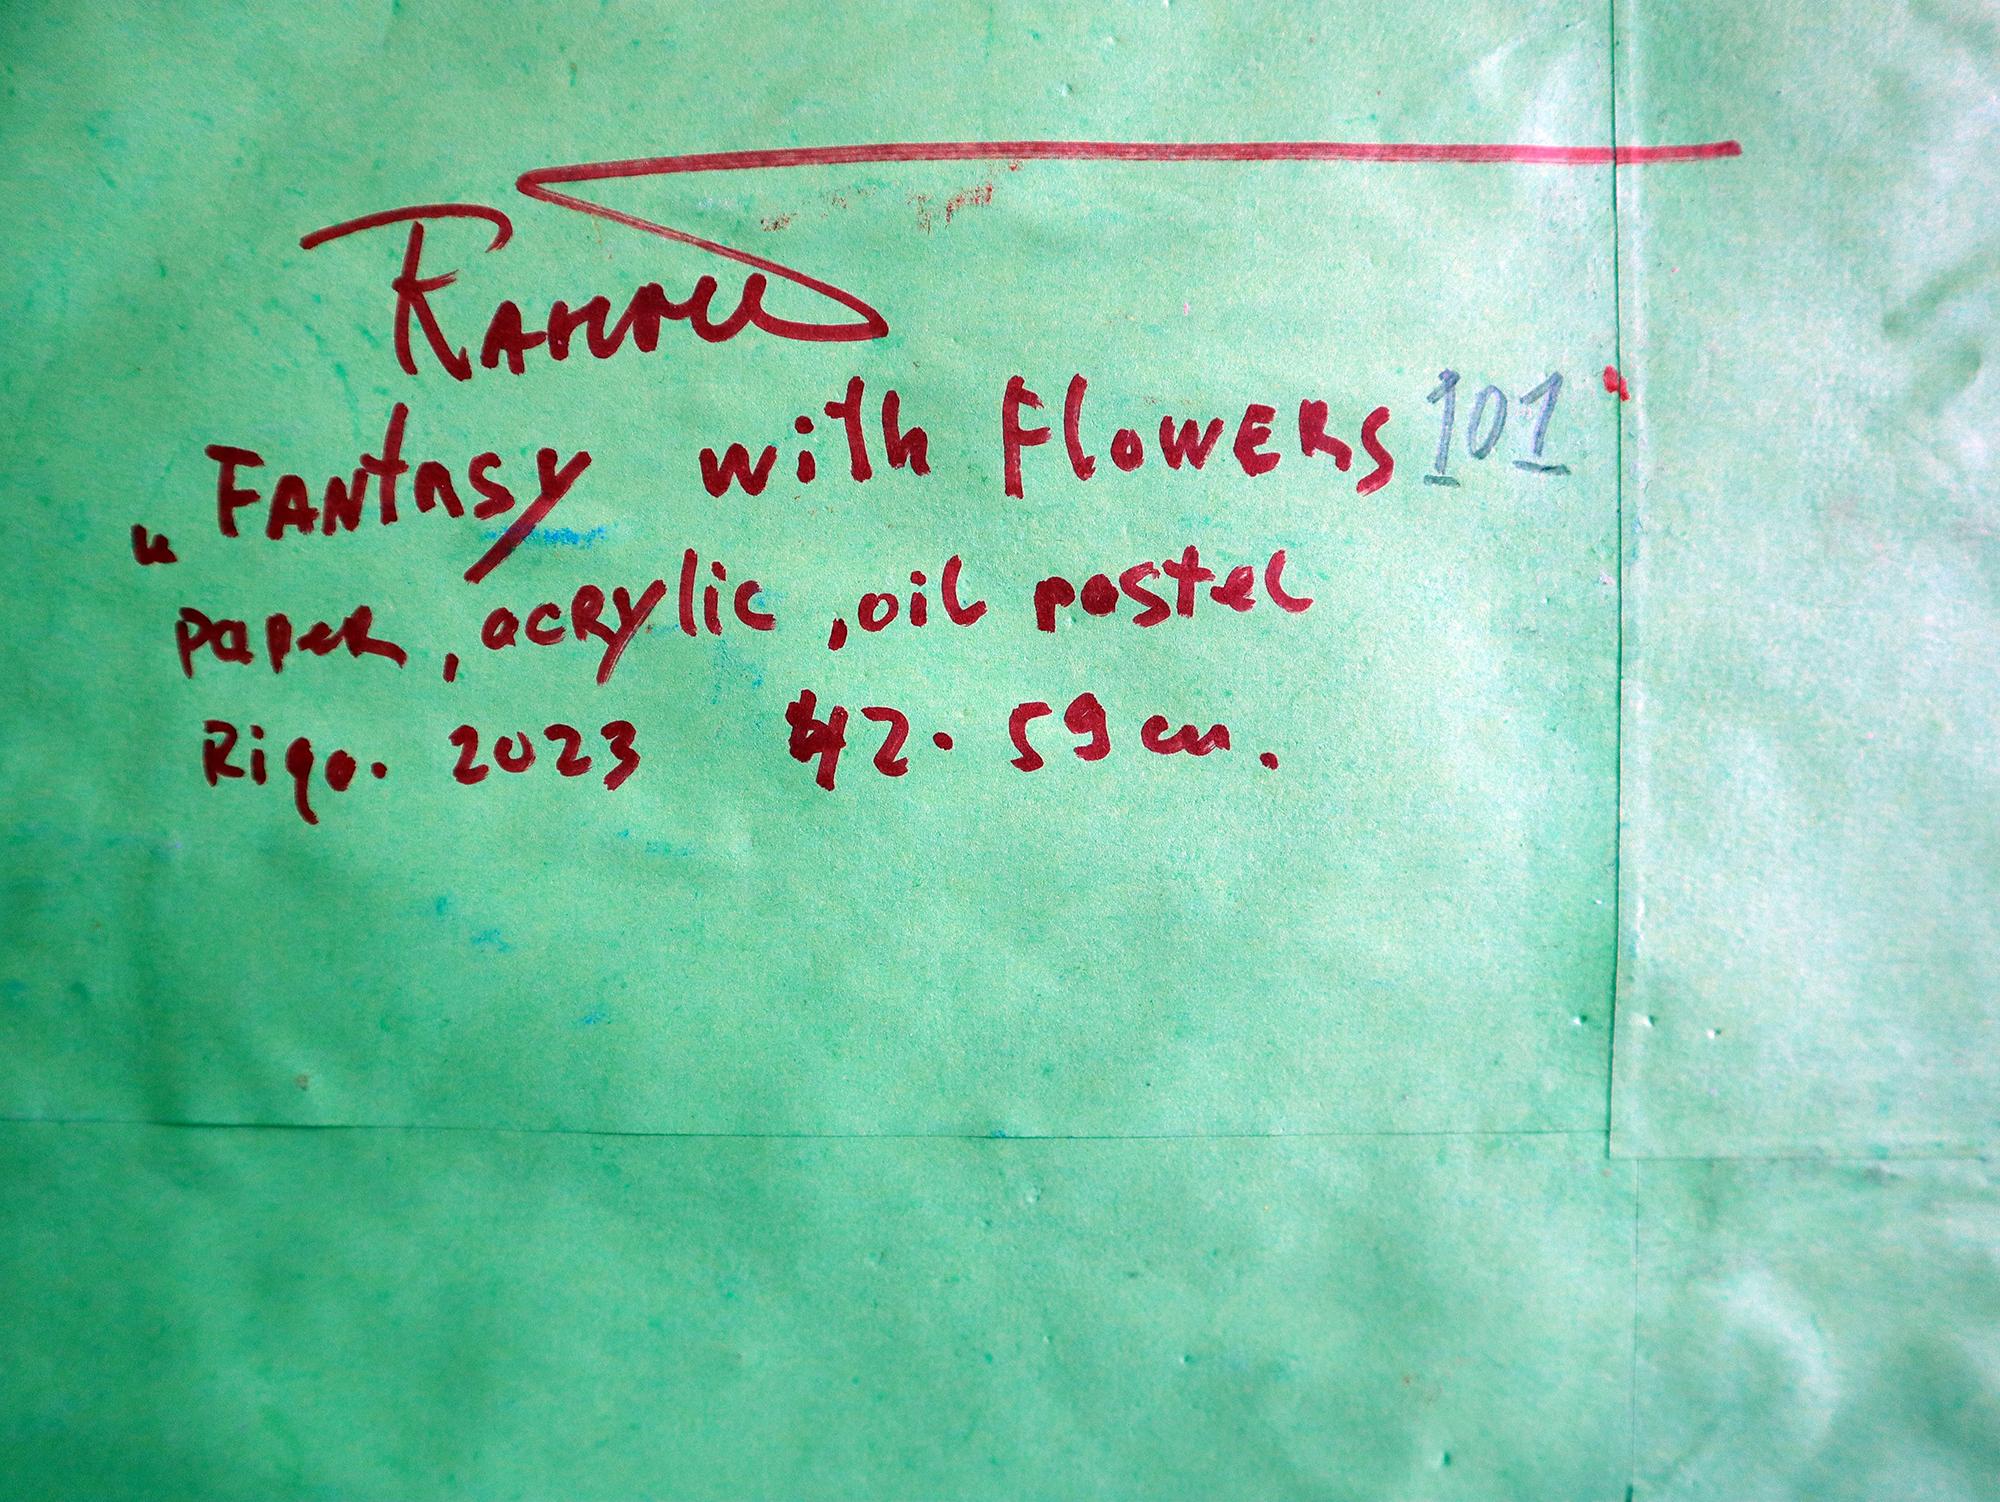 „Fantasy with Flowers 101
paper, acrylic, oil pastel
Riga. 2023 42. 59 cm.